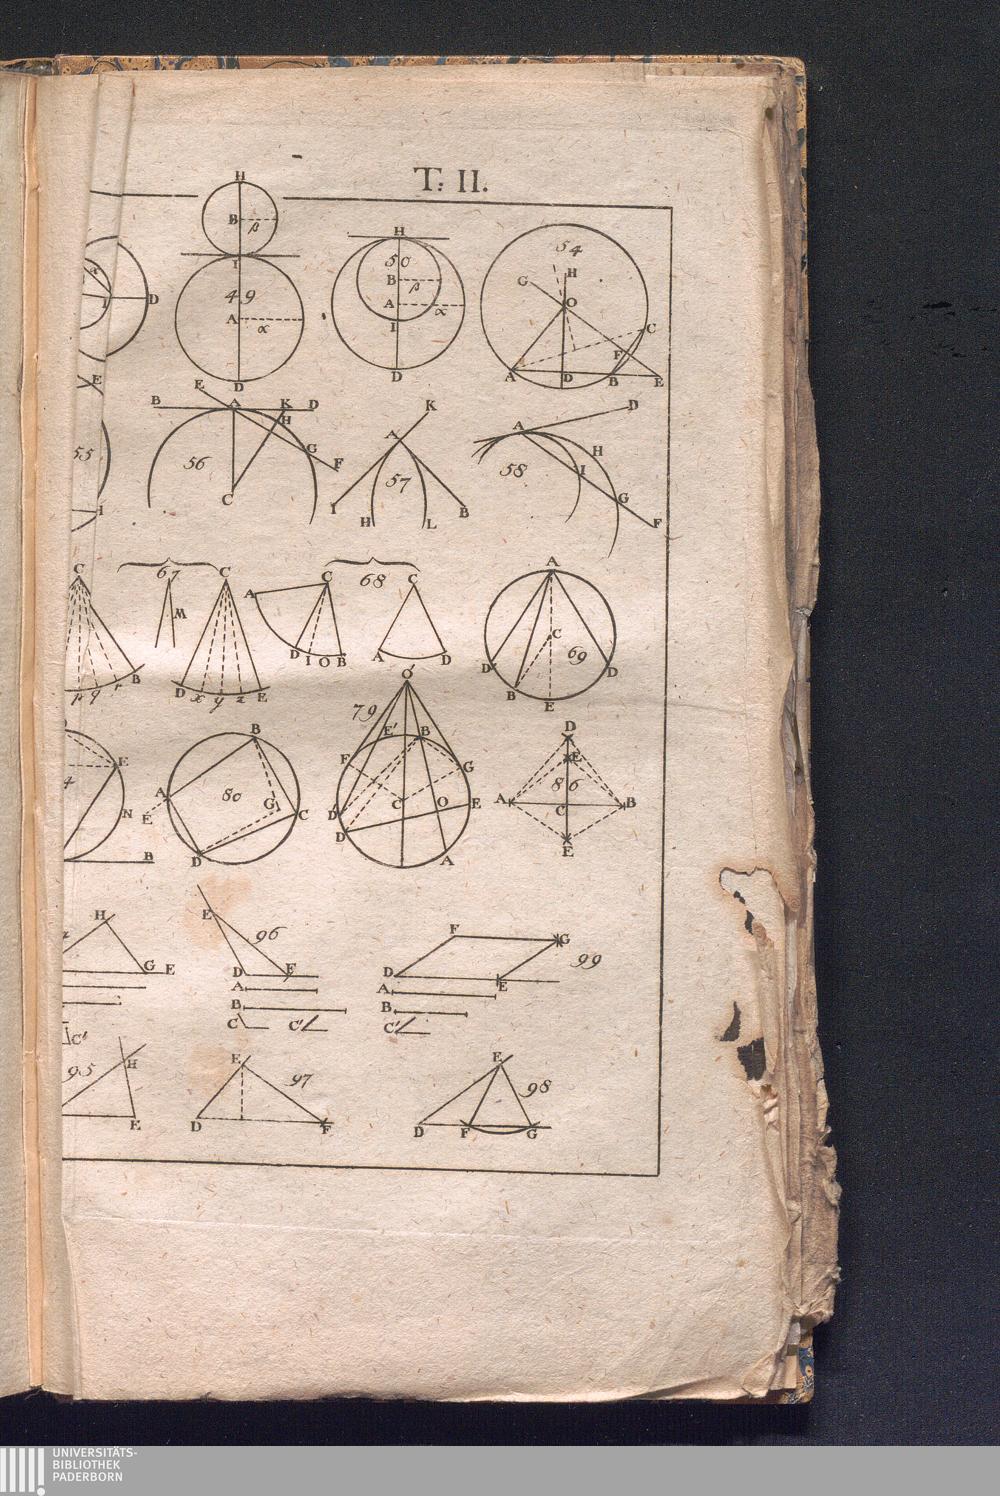 T: II.
H
B β
I
49
A α
D
H
50
B β
A α
I
D
54
G H
O
C
F
A D B E
D
I
E
55
I
E
B A K D
H
G
F
56
C
K
A
57
I H L B
D
A
H
58
I
G
F
C
p q r B
67
M
C
D x y z E
68
A C
D I O B
C
A D
A
C
69
D B E D
E
N
B
B
A
80
G C
E
D
O'
79
E' B
F G
C O E
D'
D
A
D
E
86
A C B
E
H
G E
C'
E
96
D F
A
B
C C'
F G
99
D E
A
B
C'
95
H
E
E
97
D F
E
98
D F G
UNIVERSITÄTS-
BIBLIOTHEK
PADERBORN